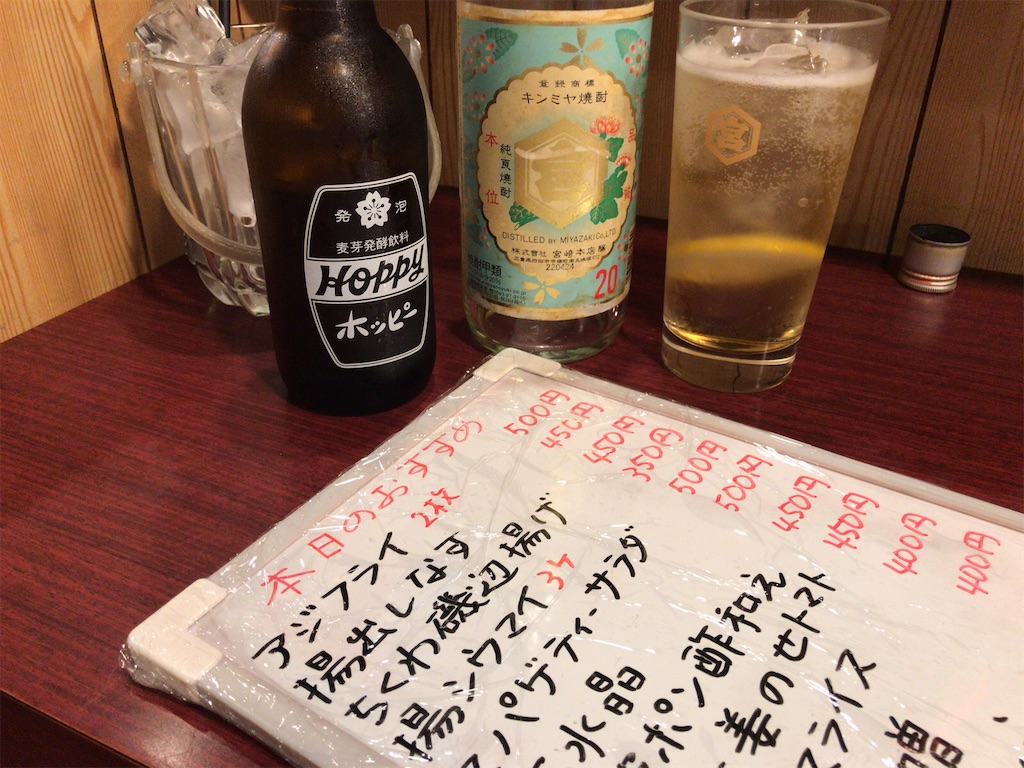 発泡
麦芽発酵飲料
HOPPY
ホッピー
登録商標
キンミヤ焼酎
本位
純良焼酎
宮
DISTILLED BY MIYAZAKI CO., LTD.
株式會社 宮﨑本店醸
220424
焼酎甲類
20
宮
本日のおすすめ
アジフライ 2枚 500円
揚出しなす 450円
ちくわ磯辺揚げ 450円
揚シウマイ 3ケ 350円
スパゲティーサラダ 500円
水晶 500円
ポン酢和え 450円
姜のせトマト 450円
スライス 400円
400円